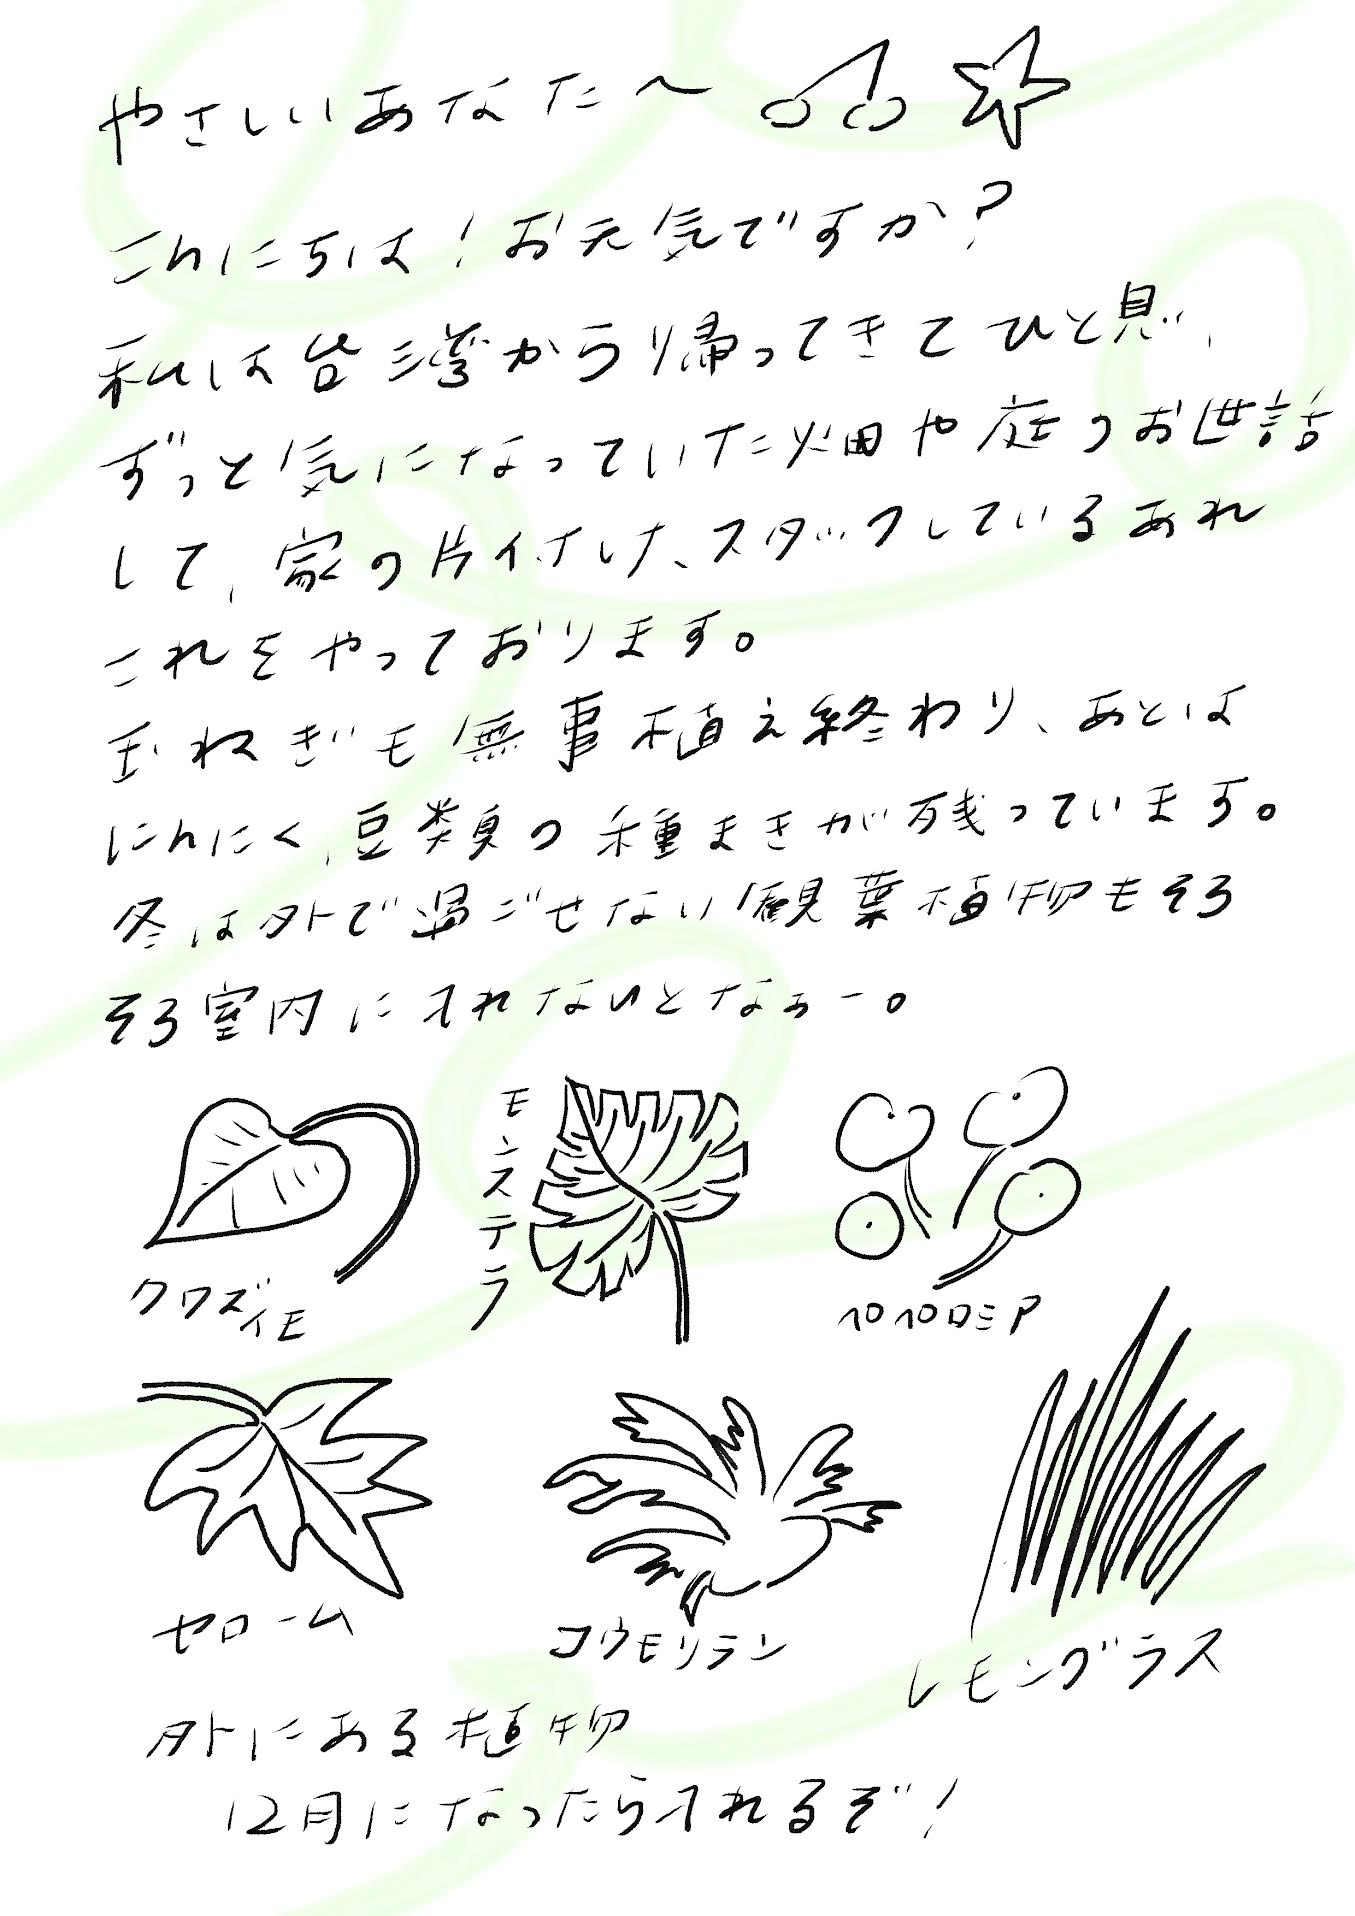 やさしいあなた〜
こんにちは！お元気ですか？
私は台湾から帰ってきてひと息、
ずっと気になっていた畑や庭のお世話
して、家の片付け、スタックしているあれ
これをやっております。
玉ねぎも無事植え終わり、あとは
にんにく、豆類の種まきが残っています。
冬は外で過ごせない観葉植物もそろ
そろ室内に入れないとなぁー。
クワズイモ
モンステラ
ペペロミア
セローム
コウモリラン
レモングラス
外にある植物
12月になったら入れるぞ！